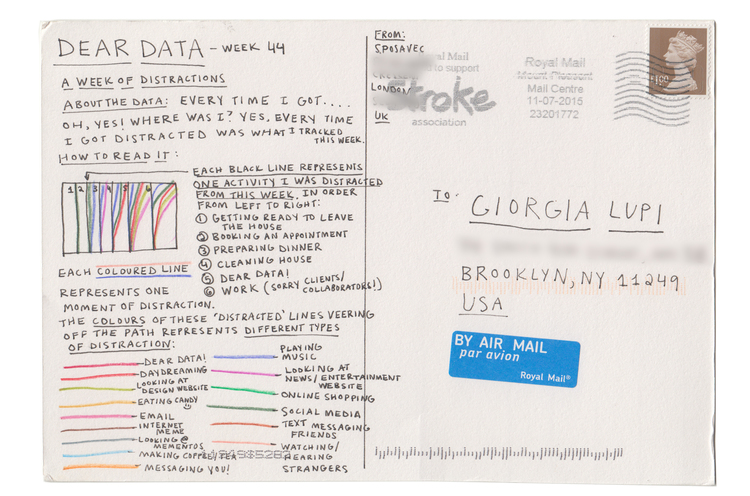 DEAR DATA - WEEK 44
A WEEK OF DISTRACTIONS
ABOUT THE DATA: EVERY TIME I GOT....
OH, YES! WHERE WAS I? YES, EVERY TIME
I GOT DISTRACTED WAS WHAT I TRACKED
THIS WEEK.
HOW TO READ IT:
1 2 3 4 5 6
EACH BLACK LINE REPRESENTS
ONE ACTIVITY I WAS DISTRACTED
FROM THIS WEEK, IN ORDER
FROM LEFT TO RIGHT:
1 GETTING READY TO LEAVE
THE HOUSE
2 BOOKING AN APPOINTMENT
3 PREPARING DINNER
4 CLEANING HOUSE
5 DEAR DATA!
6 WORK (SORRY CLIENTS/
COLLABORATORS!)
EACH COLOURED LINE
REPRESENTS ONE
MOMENT OF DISTRACTION.
THE COLOURS OF THESE 'DISTRACTED' LINES VEERING
OFF THE PATH REPRESENTS DIFFERENT TYPES
OF DISTRACTION:
DEAR DATA!
DAYDREAMING
LOOKING AT
DESIGN WEBSITE
EATING CANDY
EMAIL
INTERNET
MEME
LOOKING @
MEMENTOS
MAKING COFFEE/TEA
MESSAGING YOU!
PLAYING
MUSIC
LOOKING AT
NEWS/ENTERTAINMENT
WEBSITE
ONLINE SHOPPING
SOCIAL MEDIA
TEXT MESSAGING
FRIENDS
WATCHING/
HEARING
STRANGERS
FROM:
S.POSAVEC
LONDON
UK
Mail
to support
Stroke
association
Royal Mail
Mount Pleasant
Mail Centre
11-07-2015
23201772
TO:
GIORGIA LUPI
BROOKLYN, NY 11249
USA
BY AIR MAIL
par avion
Royal Mail®